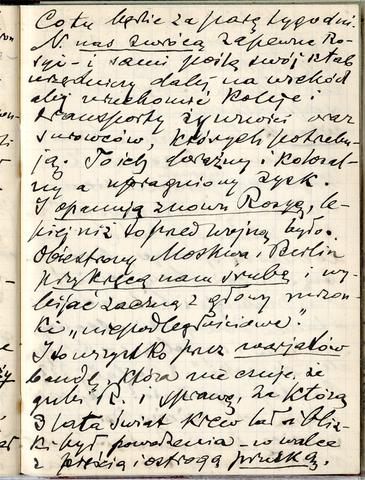 Co tu będzie za parę tygodni.
N. nas zwrócą zapewne Ro-
syi - i sami poślą swój sztab
urzędniczy dalej na wschód
aby uruchomić koleje i
transporty żywności oraz
surowców, których potrzebu-
ją. To ich doraźny i kolosal-
ny a upragniony zysk.
I opanują znowu Rosyę, le-
piej niż to przed wojną było.
Obiestrony Moskwa i Berlin
przykręcą nam śrubę i wy-
bijać zaczną z głowy mrzon-
ki „niepodległościowe".
I to wszystko przez warjatów
bandę, która nie czuje, że
gubi R. i sprawę, za którą
3 lata świat krew lał i bliz-
ki był powodzenia - w walce
z pięścią i ostrogą pruską.